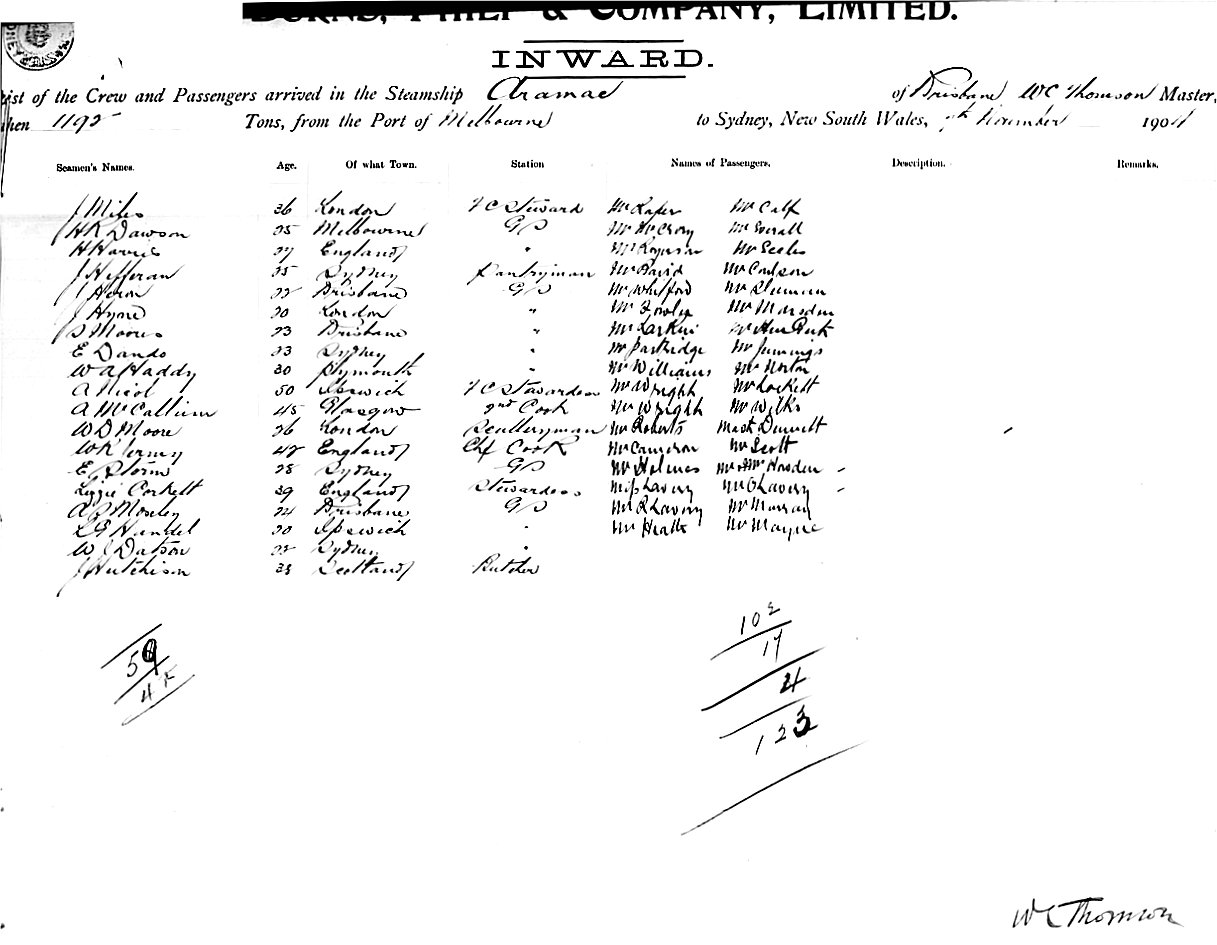 BURNS, PHILP & COMPANY, LIMITED.
INWARD.
ist of the Crew and Passengers arrived in the Steamship Aramac of Brisbane WC Thomson Master,
hen 1192 Tons, from the Port of Melbourne to Sydney, New South Wales, 7th November 1904
Seamen's Names. Age. Of what Town. Station Names of Passengers. Description. Remarks.
J Miles 36 London Steward Mr Raper Mr Calf
H R Dawson 25 Melbourne GS Mr McCrory Mr
H Harris 27 England " Mr Mr Eccles
J Hefferan 25 Sydney Pantryman Mr David Mr Coulson
J Heron 22 Brisbane GS Mr Whitford Mr
J Hyne 20 London " Mr Fowler Mr Marsden
S Moores 23 Brisbane " Mr Larkin Mr
E Dando 23 Sydney " Mr Partridge Mr Jennings
W A Haddy 30 Plymouth " Mr Williams Mr Norton
A Nicol 50 Ipswich Stewardess Mr Wright Mr Lockett
A McCallum 45 Glasgow 2nd Cook Mr Wright Mr Wilks
W D Moore 26 London Sculleryman Mr Roberts Mast
W K 42 England Chf Cook Mr Cameron Mr Scott
E Storm 28 Sydney GS Mr Holmes Mr & Mrs Hosden
Lizzie Corkett 39 England Stewardess Miss Lavery Mr Lavery
A J Moseley 24 Brisbane GS Mr R Lavery Mr Murray
L G Handel 20 Ipswich " Mr Heath Mr Mayne
W J Datson 22 Sydney "
J Hutchison 33 Scotland Butcher
59
102
17
4
123
WC Thomson